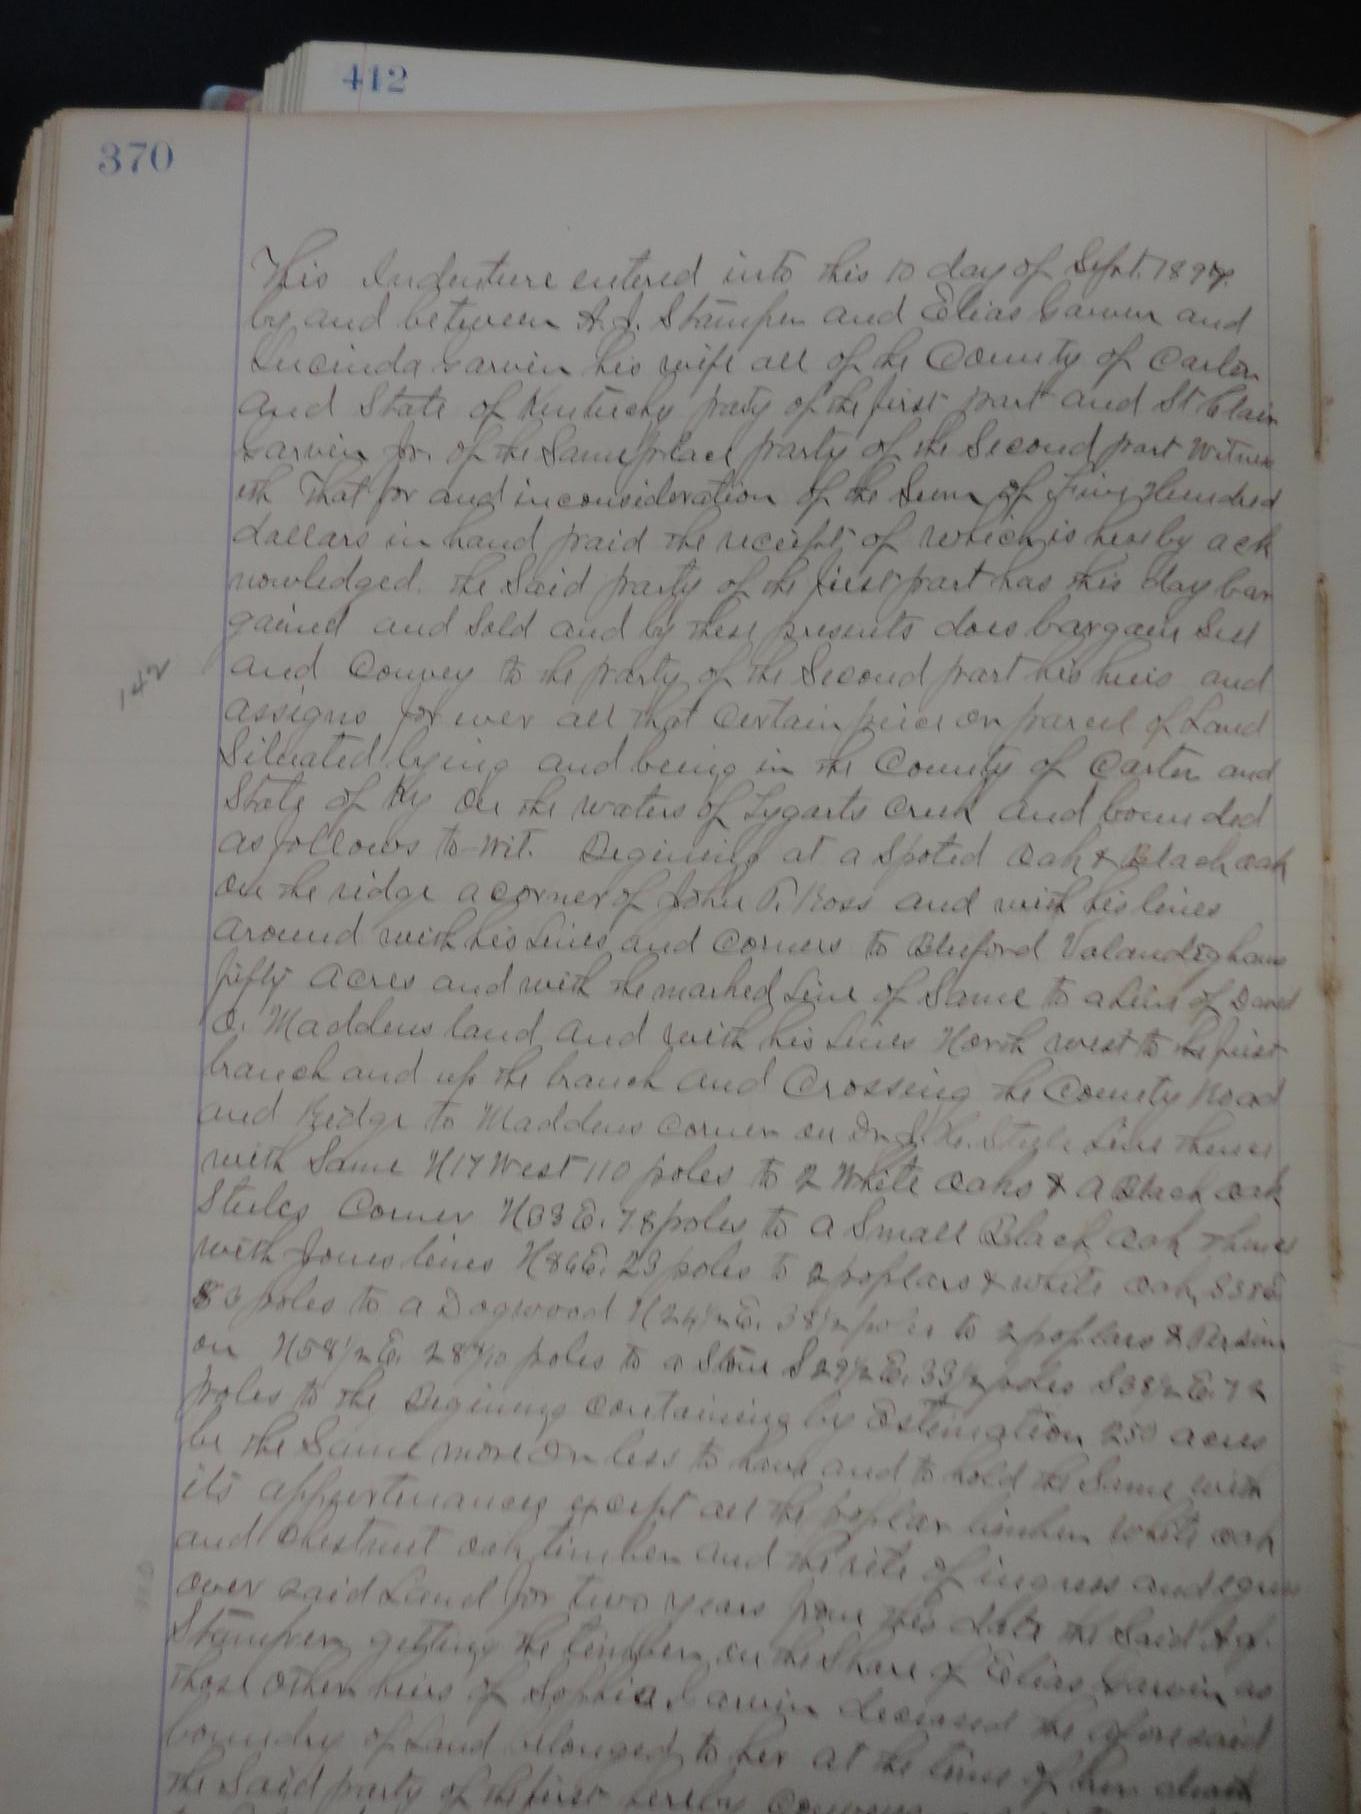 412
370
This Indenture entered into this 10 day of Sept. 1897.
by and between A. J. Stamper and Elias Garvin and
Lucinda Garvin his wife all of the County of Carter
and State of Kentucky party of the first part and St Clair
Garvin Jr. of the Same place party of the Second part Witness
eth That for and in consideration of the Sum of Five Hundred
dollars in hand paid the receipt of which is hereby ack
nowledged. the Said party of the first part has this day bar
gained and Sold and by these presents does bargain Sell
and Convey to the party of the Second part his heirs and
142
assigns for ever all that Certain peice or parcel of Land
Situated lying and being in the County of Carter and
State of Ky On the waters of Tygarts Creek and bounded
as follows to-wit. Begining at a Spoted Oak & Black oak
on the ridge a corner of John T. Ross and with his lines
around with his Lines and Corners to Bluford Valandigham
fifty acres and with the marked Line of Same to a Line of David
O. Maddens land and with his Lines North west to the first
branch and up the branch and Crossing the County Road
and Ridge to Maddens Corner on Steele Line thence
with Same N 17 West 110 poles to 2 White Oaks & a Black oak
Steeles Corner N 33 E. 78 poles to a Small Black Oak thence
with Jones lines N 86 E. 23 poles to 2 poplars & white oak, S 38 E
83 poles to a Dogwood N 24 1/2 E. 38 1/2 poles to 2 poplars & Persim
on N 58 1/2 E. 28 4/10 poles to a Stone S 29 1/2 E. 33 1/2 poles S 38 1/2 E. 72
poles to the Begining Containing by Estimation 250 acres
be the Same more Or less to have and to hold the Same with
its appurtenances except all the poplar White oak
and Chestnut oak timber and the rite of ingress and egress
over said Land for two years from this date the Said A. J.
Stamper getting the timber on the Share of Elias Garvin as
those other heirs of Sophia Garvin deceased the aforesaid
boundry of Land belonged to her at the time of her death
the Said party of the first hereby